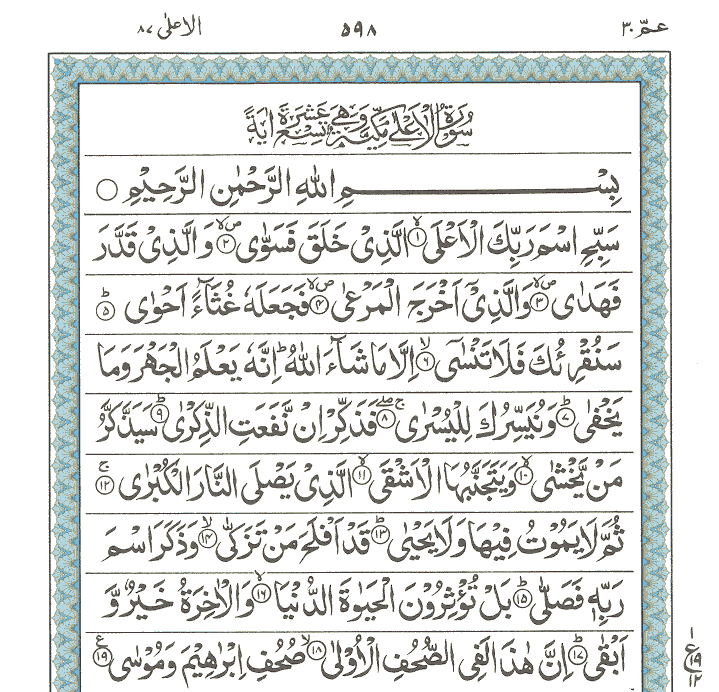 عمّ ٣٠ ٥٩٨ الاعلیٰ ٨٧
سُوۡرَةُ الۡاَعۡلٰى مَكِّيَّةٌ وَّهِىَ تِسۡعَ عَشَرَةَ اٰيَةً
بِسۡمِ اللهِ الرَّحۡمٰنِ الرَّحِيۡمِ ○
سَبِّحِ اسۡمَ رَبِّكَ الۡاَعۡلَىۙ‏ ﴿۱﴾ الَّذِىۡ خَلَقَ فَسَوّٰى ۙ ‏ ﴿۲﴾ وَالَّذِىۡ قَدَّرَ
فَهَدٰى ۙ ‏ ﴿۳﴾ وَالَّذِىۡۤ اَخۡرَجَ الۡمَرۡعٰى ۙ ‏ ﴿۴﴾ فَجَعَلَهٗ غُثَآءً اَحۡوٰىؕ‏ ﴿۵﴾
سَنُقۡرِئُكَ فَلَا تَنۡسٰٓىۙ‏ ﴿۶﴾ اِلَّا مَا شَآءَ اللّٰهُ‌ؕ اِنَّهٗ يَعۡلَمُ الۡجَهۡرَ وَمَا
يَخۡفٰىؕ‏ ﴿۷﴾ وَنُيَسِّرُكَ لِلۡيُسۡرٰى ‌ۖ‌ۚ‏ ﴿۸﴾ فَذَكِّرۡ اِنۡ نَّفَعَتِ الذِّكۡرٰىؕ‏ ﴿۹﴾ سَيَذَّكَّرُ
مَنۡ يَّخۡشٰىۙ‏ ﴿۱۰﴾ وَيَتَجَنَّبُهَا الۡاَشۡقَىۙ‏ ﴿۱۱﴾ الَّذِىۡ يَصۡلَى النَّارَ الۡكُبۡرٰى‌ۚ‏ ﴿۱۲﴾
ثُمَّ لَا يَمُوۡتُ فِيۡهَا وَلَا يَحۡيٰىؕ‏ ﴿۱۳﴾ قَدۡ اَفۡلَحَ مَنۡ تَزَكّٰىۙ‏ ﴿۱۴﴾ وَذَكَرَ اسۡمَ
رَبِّهٖ فَصَلّٰى‌ؕ‏ ﴿۱۵﴾ بَلۡ تُؤۡثِرُوۡنَ الۡحَيٰوةَ الدُّنۡيَا ۙ ‏ ﴿۱۶﴾ وَالۡاٰخِرَةُ خَيۡرٌ وَّ
اَبۡقٰىؕ‏ ﴿۱۷﴾ اِنَّ هٰذَا لَفِى الصُّحُفِ الۡاُوۡلٰىۙ‏ ﴿۱۸﴾ صُحُفِ اِبۡرٰهِيۡمَ وَمُوۡسٰى ﴿۱۹﴾ ع
١
ع ١٩
١٢